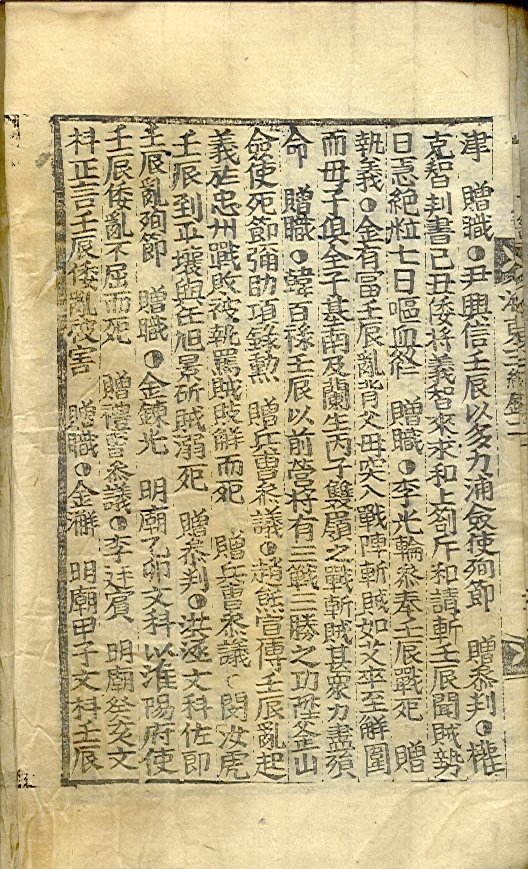 津 贈職●尹興信壬辰以多大浦僉使殉節 贈參判●權
克智判書己丑倭將義智來求和上箚斥和請斬壬辰聞賊勢
日急絶粒七日嘔血終 贈職●李光輪參奉壬辰戰死 贈
執義●金有富壬辰亂背父母突入戰陣斬賊如艾卒至解圍
而母子俱全子甚 及蘭生丙子雙 之戰斬賊甚衆力盡殞
命 贈職●韓百祿壬辰以前營將有三戰三勝之功 釜山
僉使死節彌助項錄勳 贈兵曹參議●趙 宣傳壬辰亂起
義於忠州戰敗被執罵賊肢解而死 贈兵曹參議●閔汝虎
壬辰到平壤與任旭景斫賊溺死 贈參判●洪 文科佐郎
壬辰亂殉節 贈職●金鍊光 明廟乙卯文科以淮陽府使
壬辰倭亂不屈而死 贈禮曹參議●李廷賓 明廟 文
科正言壬辰倭亂被害 贈職●金澥 明廟甲子文科壬辰